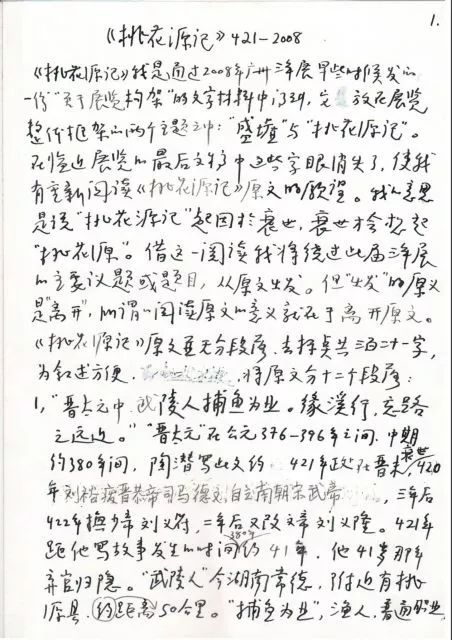 1.
《桃花源记》421-2008
《桃花源记》我是通过2008年广州三年展早些时候发的
一份"关于展览构架"的文字材料中谈到,它是放在展览
整体框架的两个主题之中:"盛墟"与"桃花源记"。
在临近展览的最后文稿中这些字眼消失了,使我
有重新阅读《桃花源记》原文的愿望。我的意思
是说"桃花源记"起因于衰世,衰世才会想起
"桃花源"。借这一阅读我将绕过此届三年展
的主要议题或题目,从原文出发。但"出发"的原义
是"离开",所谓的阅读原文的意义就在于离开原文。
《桃花源记》原文并无分段落,去掉标点共三百二十一字,
为叙述方便,将原文分十二个段落:
1,"晋太元中,武陵人捕鱼为业。缘溪行,忘路
之远近。""晋太元"在公元376-396年之间,中期
约380年间,陶潜写此文约421年政处在晋末衰世/420
年刘裕废晋恭帝司马德文自立南朝宋武帝,三年后
422年换少帝刘义符,二年后又改文帝刘义隆。421年
距他写故事发生的时间(380年)约41年,他41岁那年
弃官归隐。"武陵人"今湖南常德,附近有桃
源县,约距离50公里。"捕鱼为业",渔人,普通职业,